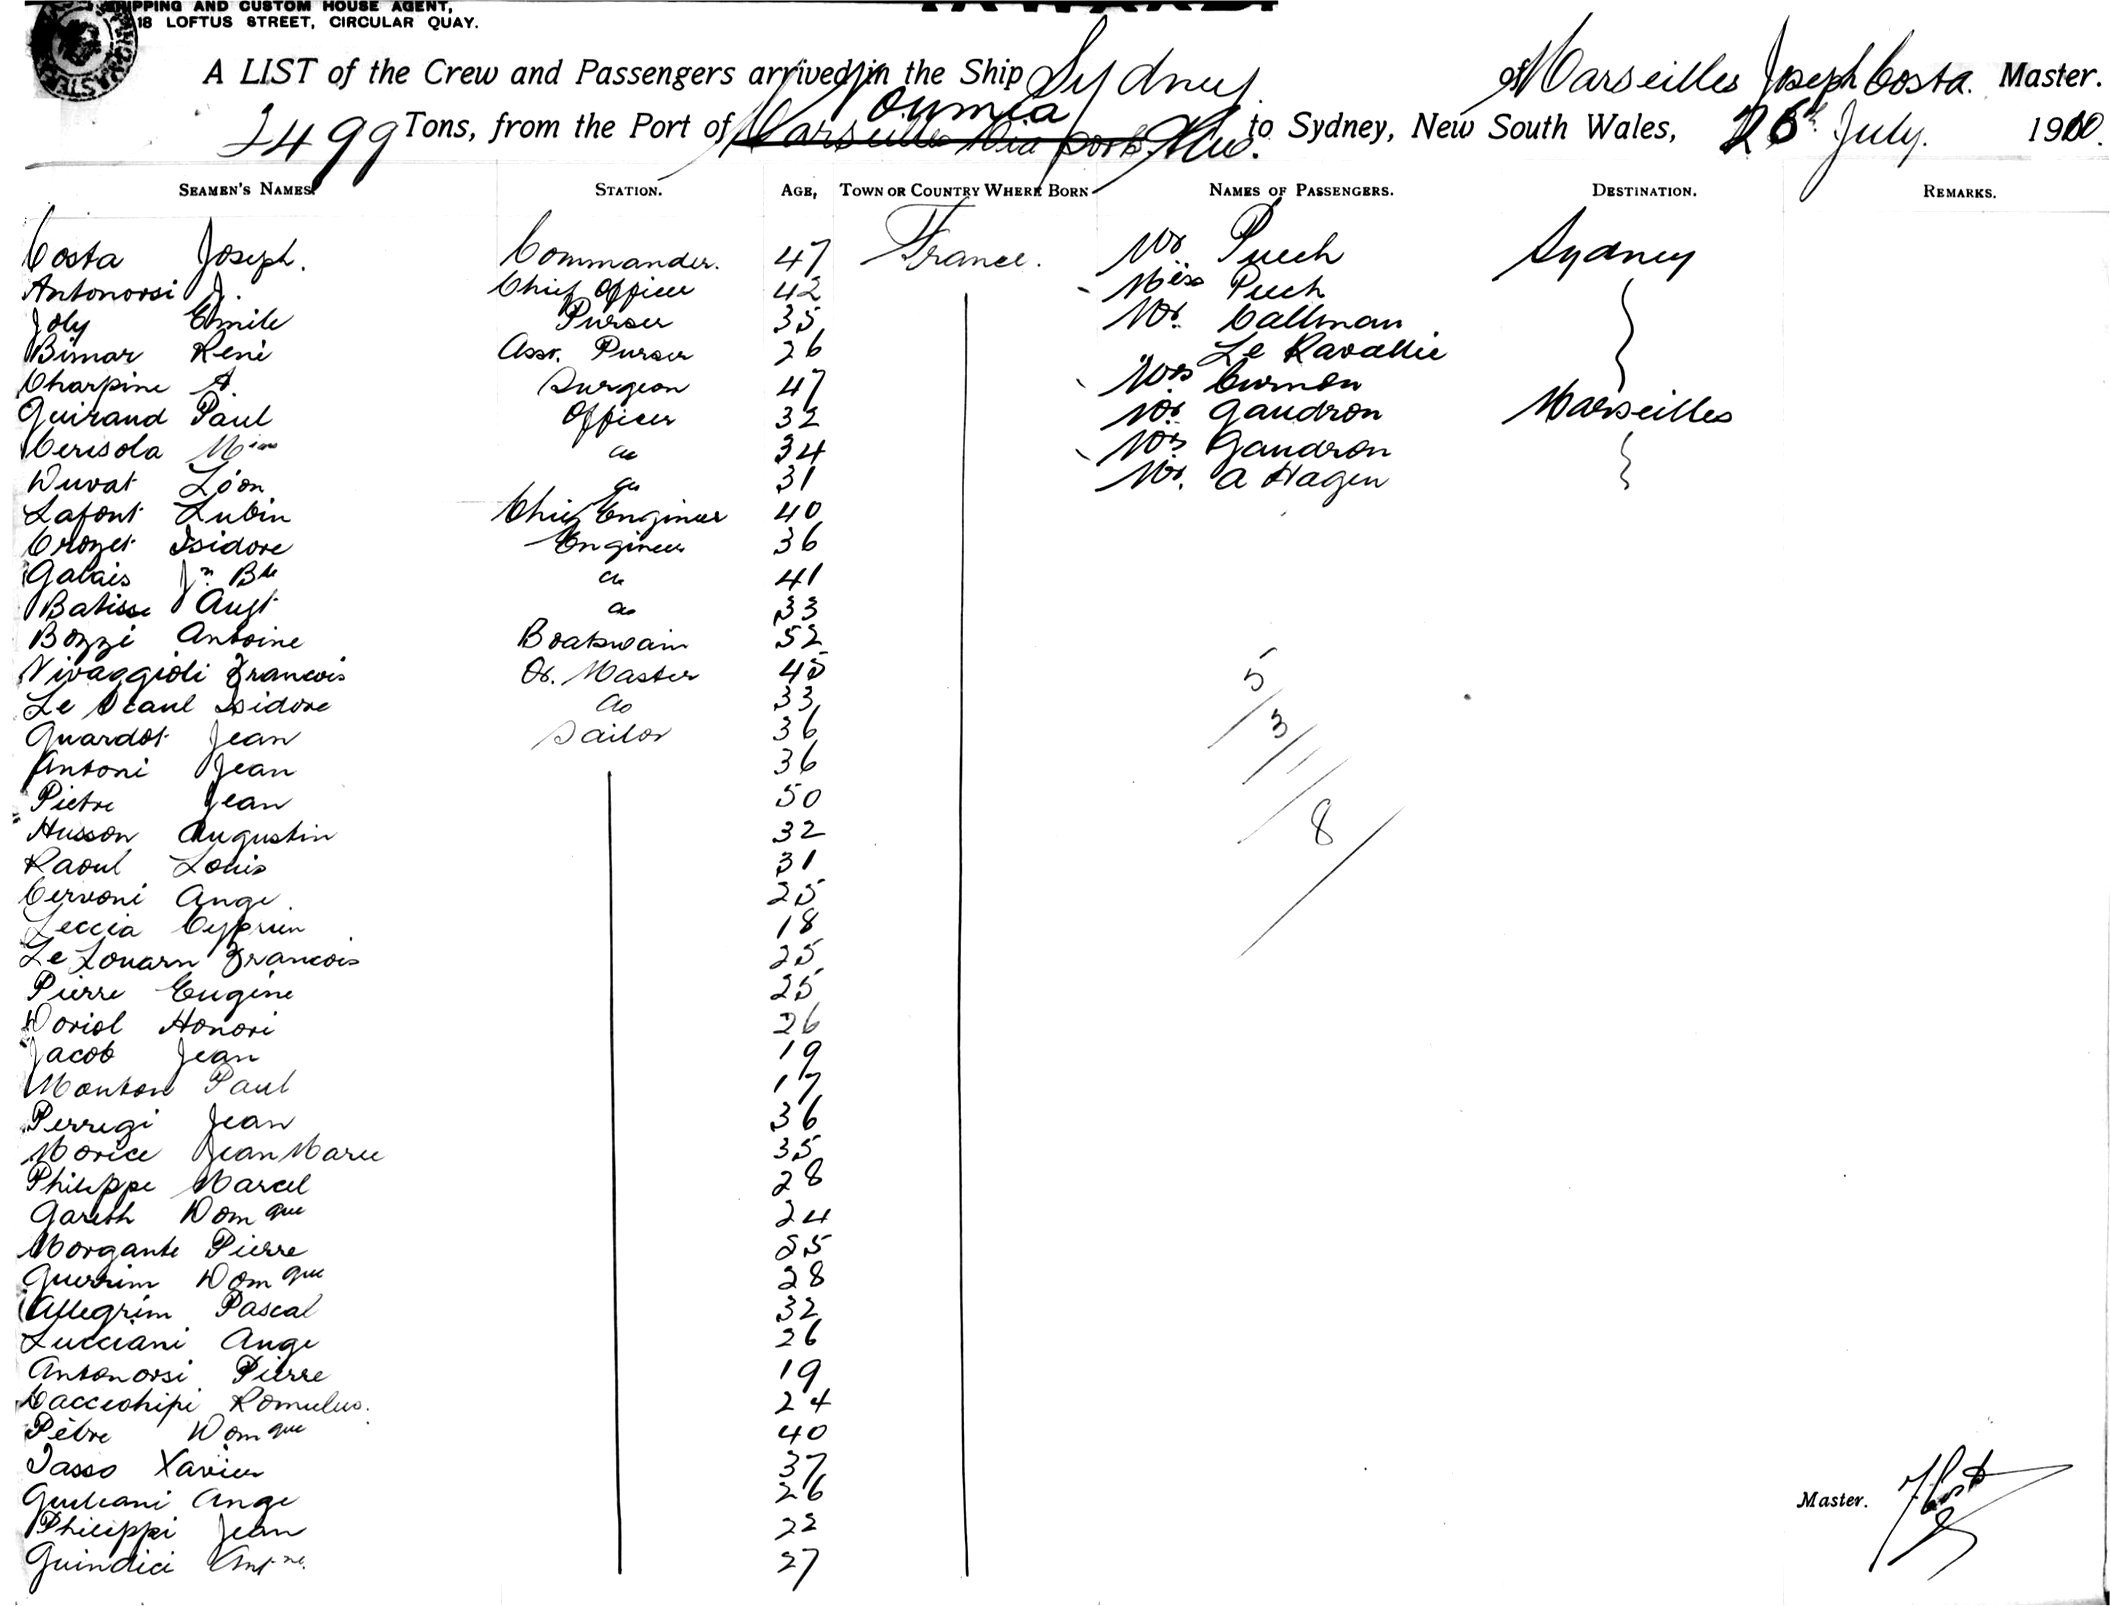 SHIPPING AND CUSTOM HOUSE AGENT,
18 LOFTUS STREET, CIRCULAR QUAY.
A LIST of the Crew and Passengers arrived in the Ship Sydney of Marseilles Joseph Costa. Master.
2499 Tons, from the Port of Noumea to Sydney, New South Wales, 26th July. 1910.
SEAMEN'S NAMES. STATION. AGE, TOWN OR COUNTRY WHERE BORN NAMES OF PASSENGERS. DESTINATION. REMARKS.
Costa Joseph. Commander. 47 France. Mr Puech Sydney
Antonorsi J. Chief Officer 42 Miss Puech
Joly Emile Purser 35 Mr. Callman
Bimar René Asst. Purser 26 Le Ravallie
Charpine A. Surgeon 47 Mrs Curnon
Guiraud Paul Officer 32 Mr Gaudron Marseilles
Cerisola Mius do 34 Mrs Gaudron
Duvat Léon do 31 Mr. A Hagen
Lafont Lubin Chief Engineer 40
Crozet Isidore Engineer 36
Galais Jn Bte do 41
Batisse Augt do 33
Bozzi Antoine Boatswain 52
Vivaggioli Francois Qr. Master 45
Le Scaul Isidore do 33
Guardot Jean Sailor 36
Antoni Jean 36
Pietre Jean 50
Husson Augustin 32
Raoul Louis 31
Cervoni Ange 25
Leccia Cyprien 18
Le Louarn Francois 25
Pierre Eugene 25
Doriol Honori 26
Jacob Jean 19
Monton Paul 17
Perregi Jean 36
Morice Jean Marie 35
Philippe Marcel 28
Garesh Domque 24
Morgante Pierre 25
Guerrim Domque 28
Allegrim Pascal 32
Lucciani Ange 26
Antonorsi Pierre 19
Caccichipi Romulus. 24
Pètre Domque 40
Tasso Xavier 37
Guiliani Ange 26
Philippi Jean 22
Guindici Antne. 27
5/
3/
1/
8/
Master. J Costa